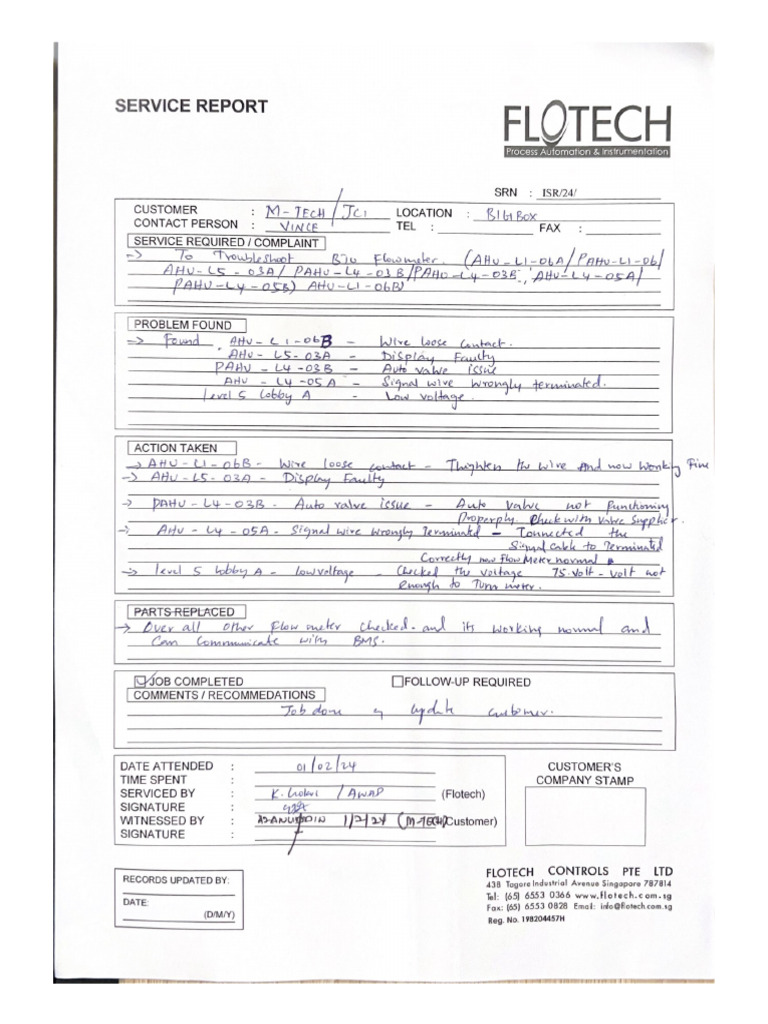 SERVICE REPORT
FLOTECH
Process Automation & Instrumentation
SRN : ISR/24/
CUSTOMER : M-TECH / JCI LOCATION : BIGBOX
CONTACT PERSON : VINCE TEL : FAX :
SERVICE REQUIRED / COMPLAINT
-> To Troubleshoot Btu Flowmeter. (AHU-L1-06A/ PAHU-L1-06/
AHU-L5-03A/ PAHU-L4-03B/PAHU-L4-03B, AHU-L4-05A/
PAHU-L4-05B) AHU-L1-06B)
PROBLEM FOUND
-> Found AHU-L1-06B - Wire loose contact.
AHU-L5-03A - Display Faulty
PAHU-L4-03B - Auto valve issue
AHU-L4-05A - Signal wire wrongly terminated.
Level 5 lobby A - Low voltage.
ACTION TAKEN
-> AHU-L1-06B - Wire loose contact - Thighten the wire And now Working Fine
-> AHU-L5-03A - Display Faulty
-> PAHU-L4-03B. Auto valve issue - Auto valve not functioning
Properply Check with Valve Supplier.
-> AHU-L4-05A - Signal wire wrongly Terminated - Connected the
Signal Cable to Terminated
Correctly now Flow Meter normal
-> level 5 lobby A - low voltage - Checked the voltage 75.Volt - Volt not
enough to Turn meter.
PARTS REPLACED
-> Over all other Flow meter checked. and its working normal and
Can Communicate with BMS.
JOB COMPLETED FOLLOW-UP REQUIRED
COMMENTS / RECOMMEDATIONS
Job done update customer.
DATE ATTENDED : 01/02/24
TIME SPENT :
SERVICED BY : / AWAP (Flotech)
SIGNATURE :
WITNESSED BY : AZANUDDIN 1/2/24 (M-TECH) (Customer)
SIGNATURE :
CUSTOMER'S
COMPANY STAMP
RECORDS UPDATED BY:
DATE:
(D/M/Y)
FLOTECH CONTROLS PTE LTD
438 Tagore Industrial Avenue Singapore 787814
Tel: (65) 6553 0366 www.flotech.com.sg
Fax: (65) 6553 0828 Email: info@flotech.com.sg
Reg. No. 198204457H